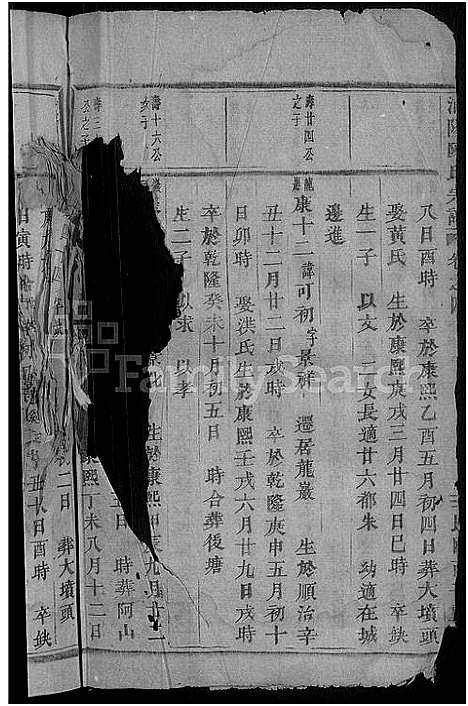 陳氏宗譜 卷之四
八日酉時 卒於康熙乙酉五月初四日葬大墳頭
娶黃氏 生於康熙庚戌三月廿四日巳時 卒缺
生一子 以文 二女長適廿六都朱 幼適在城
邊進
壽廿四公之子
康十二 諱可初 字景祥 遷居龍巖 生於順治辛
丑十二月廿二日戌時 卒於乾隆庚申五月初十
日卯時 娶洪氏生於康熙壬戌六月廿九日戌時
卒於乾隆癸未十月初五日 時合葬後塘
生二子 以求 以孝
壽十六公
生於康熙 九月廿二
五日 時葬阿山
康熙丁未八月十二日
二日 葬大墳頭
日酉時 卒缺
日寅時
FamilySearch